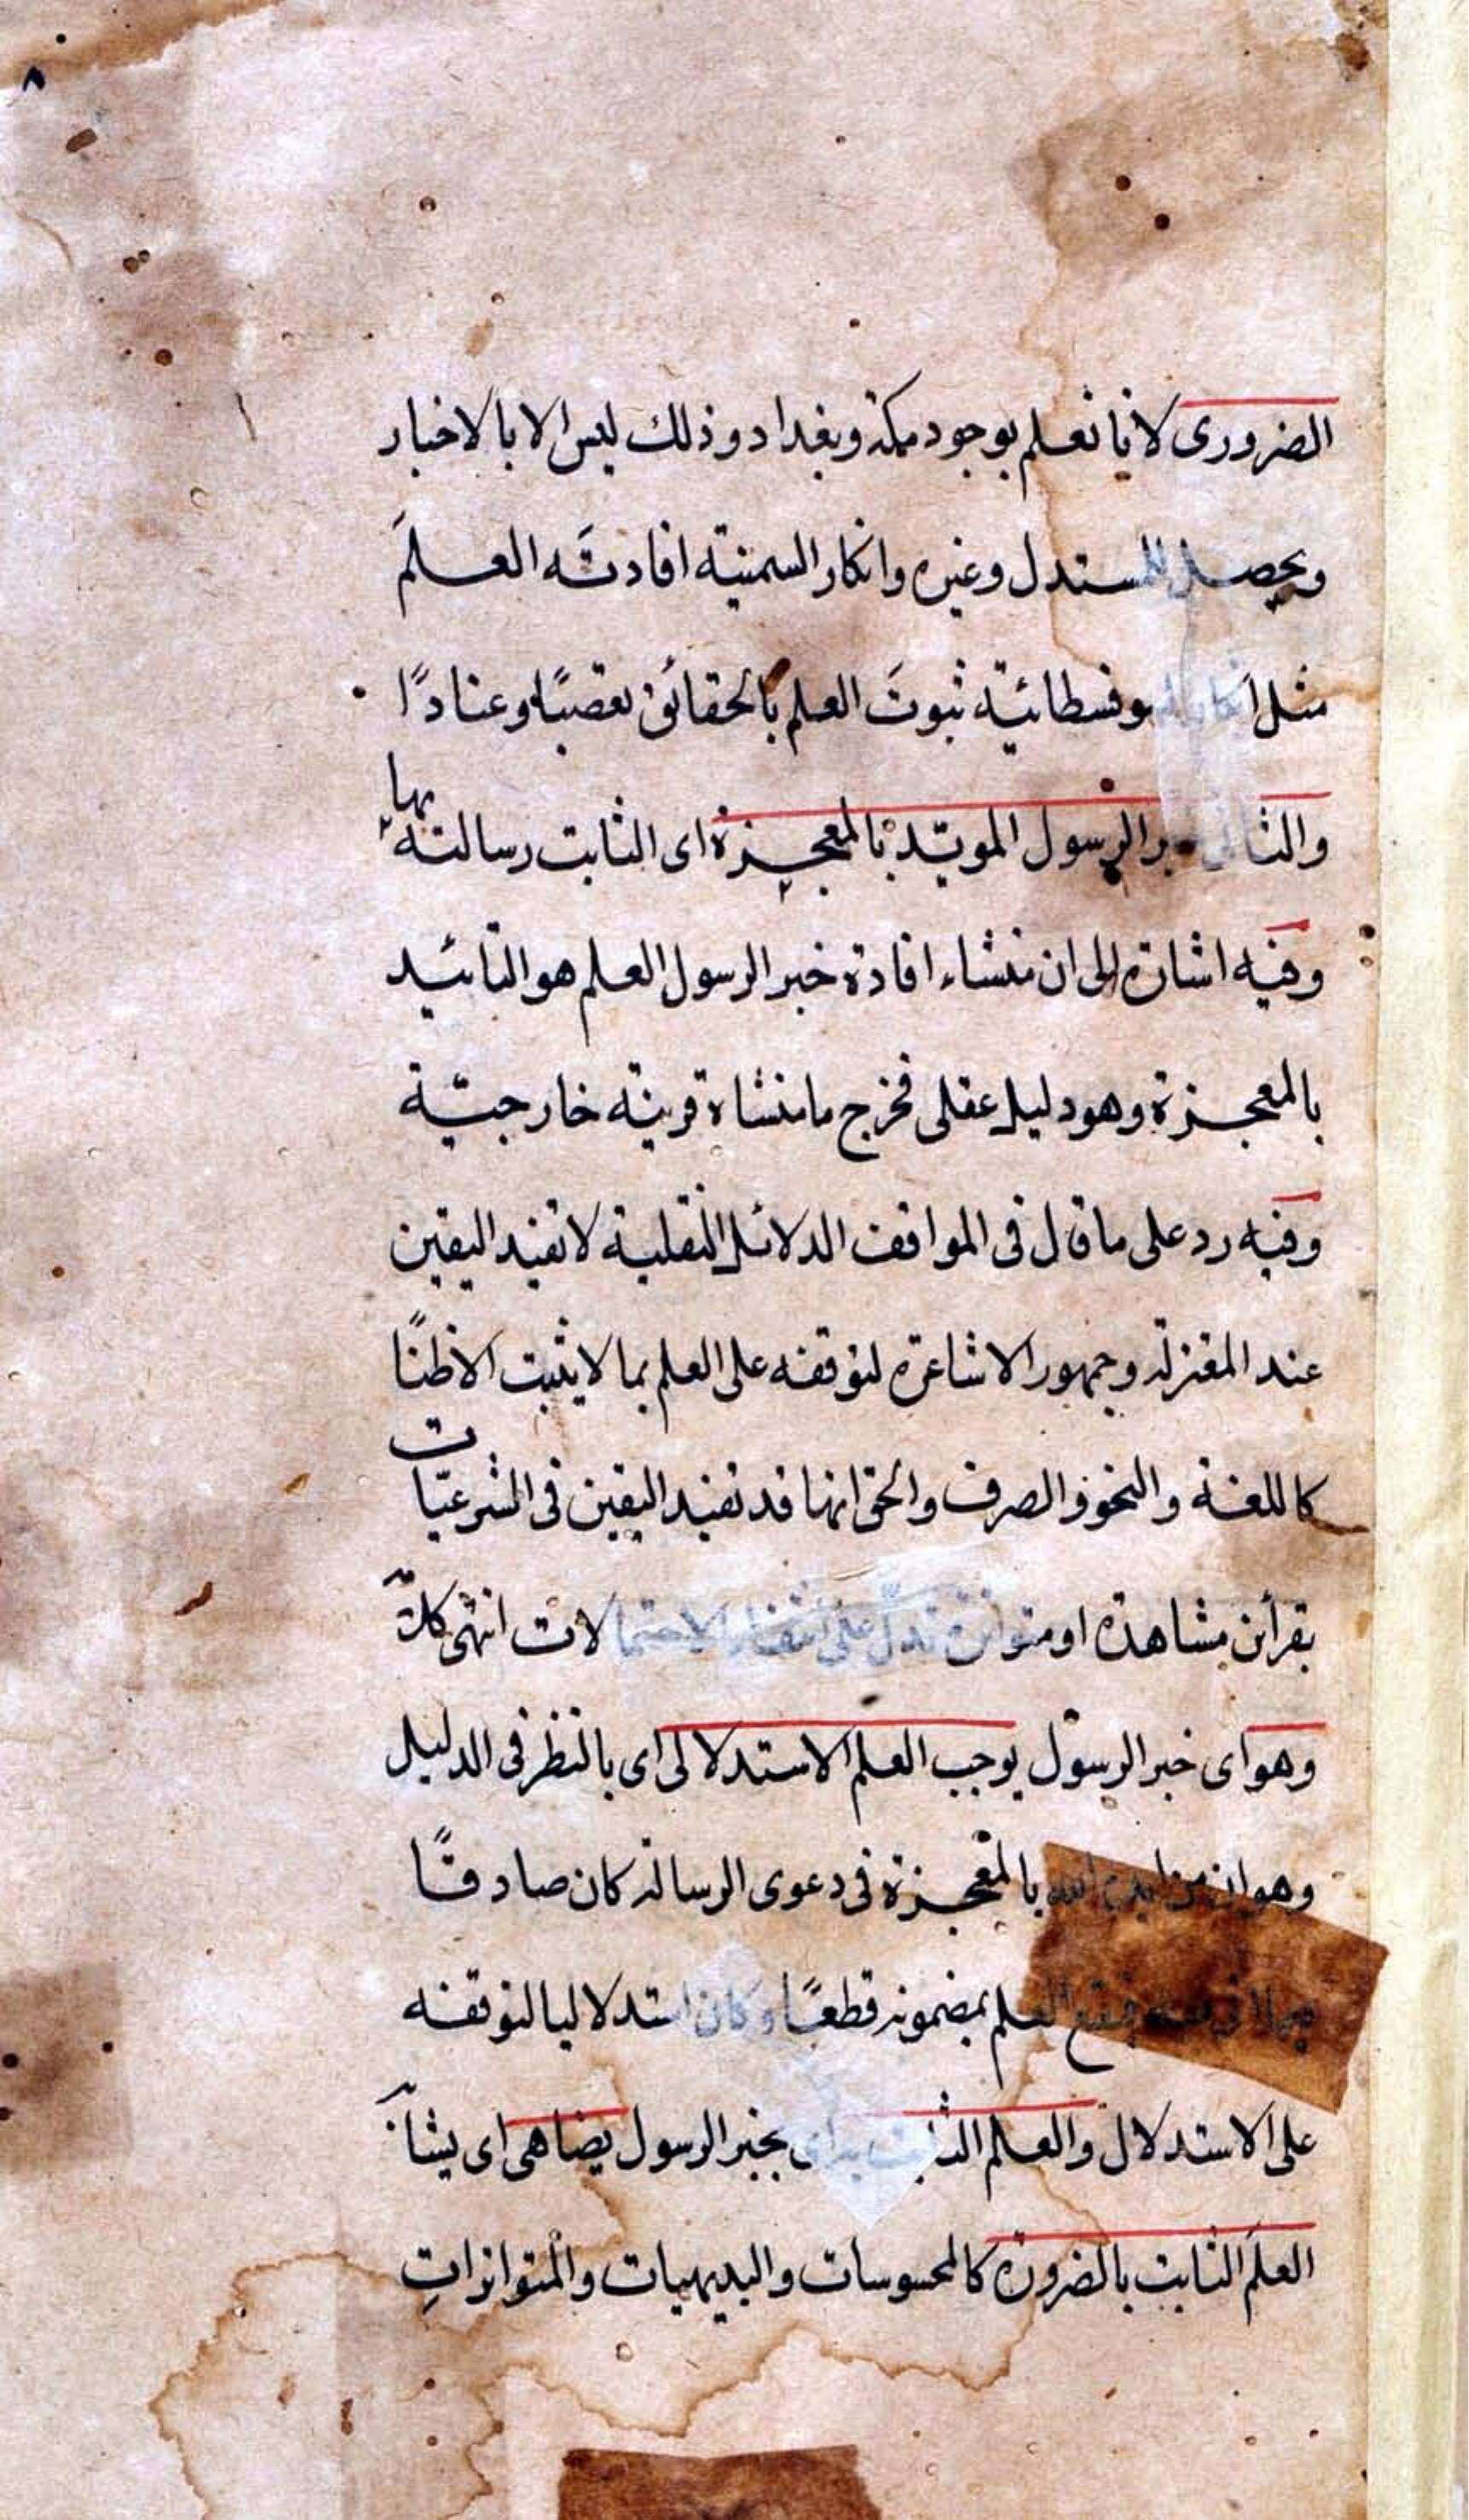 ٨
الضرورى لانا نعلم بوجود مكة وبغداد وذلك ليس الا بالاخبار
ويحصل للمستدل وغيره وانكار السمنية افادتَه العلمَ
مثل انكار السوفسطائية ثبوتَ العلم بالحقائق تعصبًا وعنادًا
والثانى خبر الرسول المويّد بالمعجزة اى الثابت رسالته بها
وفيه اشارة الى ان منشاء افادة خبر الرسول العلم هو التائيد
بالمعجزة وهو دليل عقلى فخرج ما منشاه قرينة خارجيّة
وفيه رد على ما قال فى المواقف الدلائل النقلية لا تفيد اليقين
عند المعتزلة وجمهور الاشاعرة لتوقفه على العلم بما لا يثبت الا ظنًا
كاللغة والنحو والصرف والحق انها قد تفيد اليقين فى الشرعيّات
بقرأئن مشاهدة او متواترة تدلّ على انتفاء الاحتمالات انتهى كلامه
وهو اى خبر الرسول يوجب العلم الاستدلالى اى بالنظر فى الدليل
وهو ان من ايده الله بالمعجزة فى دعوى الرسالة كان صادقًا
فيقع العلم بمضمونه قطعًا وكان استدلاليا لتوقفه
على الاستدلال والعلم الثابت به اى بخبر الرسول يضاهى اى يشابه
العلمَ الثابت بالضرورة كالمحسوسات والبديهيات والمتواتراتِ